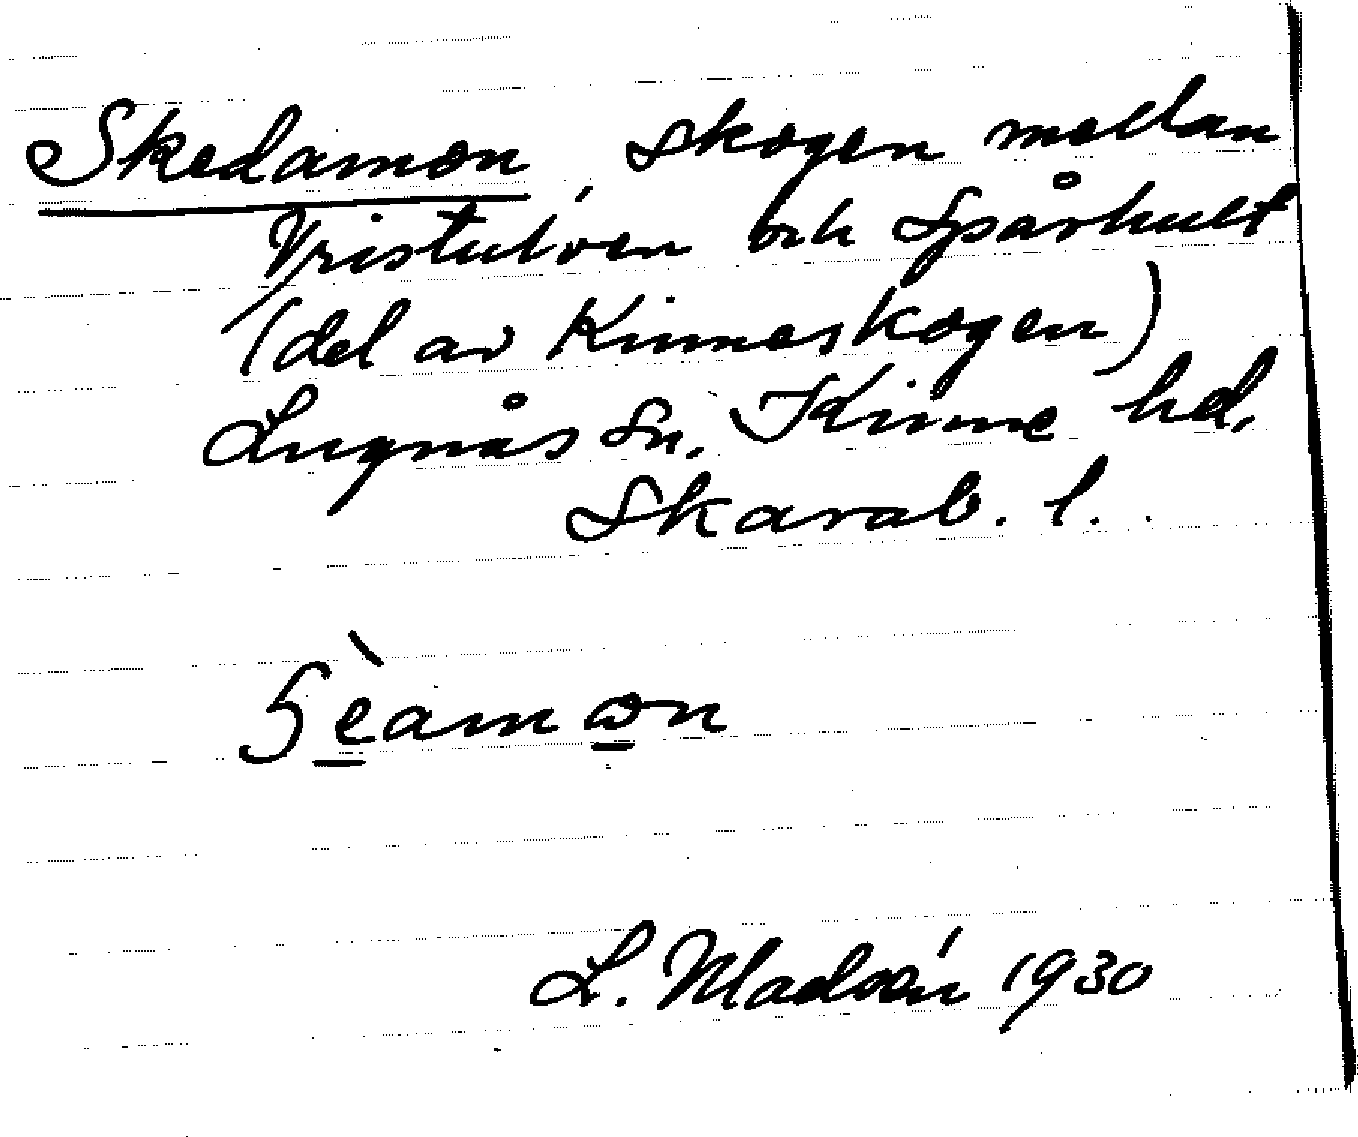 Skedamon, skogen mellan
Vristulven och Spårhult
(del av Kinneskogen)
Lugnås sn. Kinne hd,
Skarab. l.
L. Madsén 1930